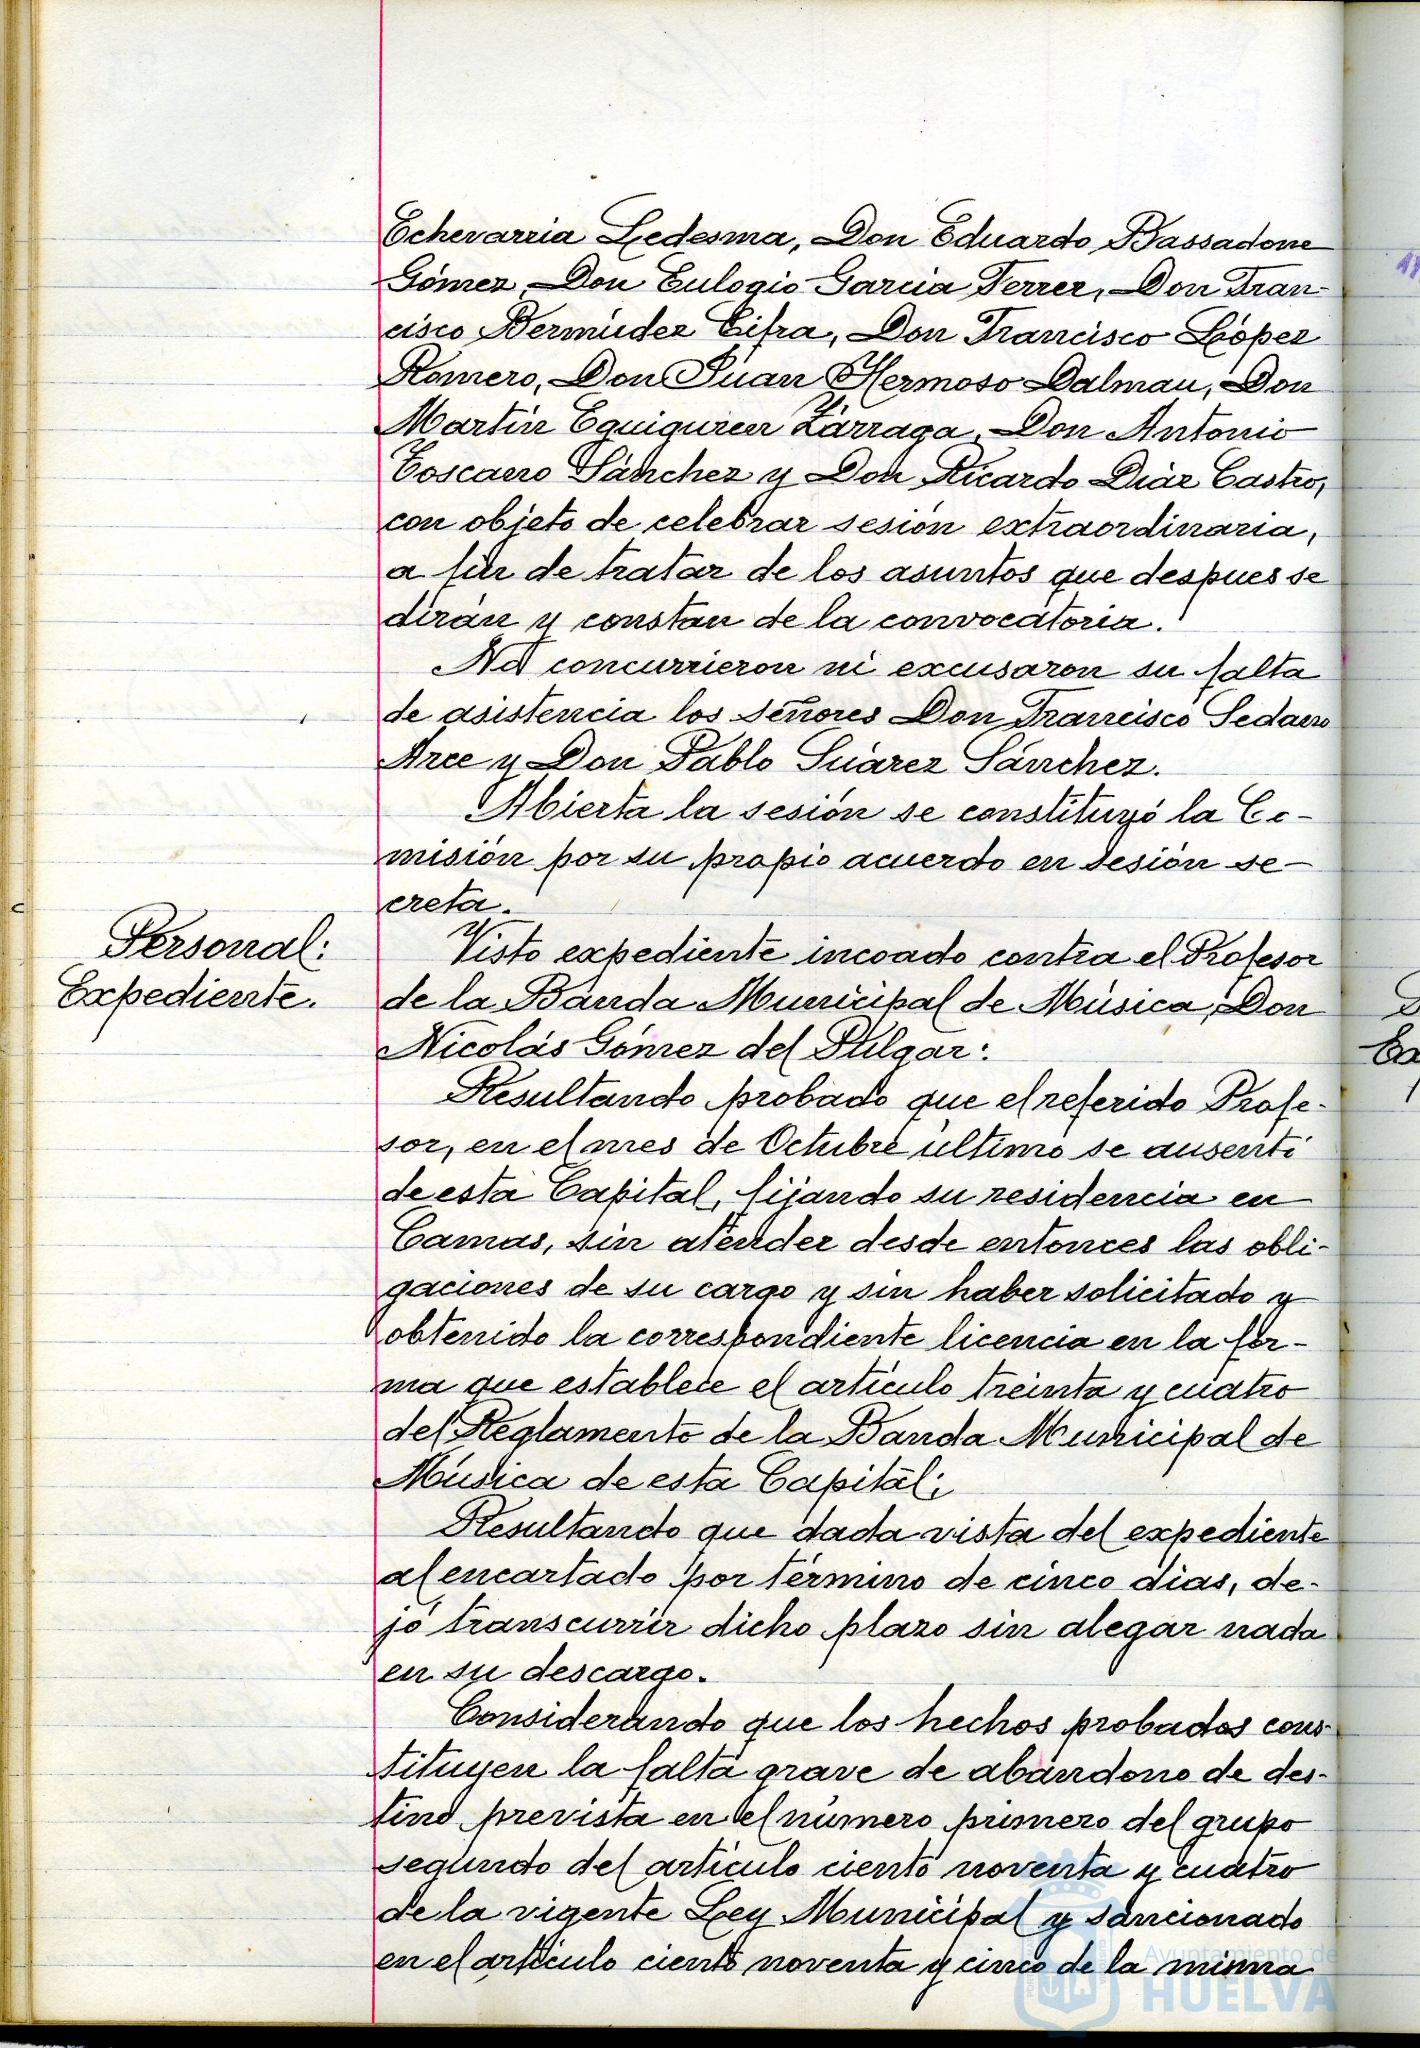 Echevarria Ledesma, Don Eduardo Bassadone
Gómez, Don Eulogio Garcia Ferrer, Don Fran-
cisco Bermúdez Cifra, Don Francisco López
Romero, Don Juan Hermoso Dalmau, Don
Martin Eguiguren Zárraga, Don Antonio
Toscano Sánchez y Don Ricardo Diáz Castro,
con objeto de celebrar sesión extraordinaria,
a fin de tratar de los asuntos que despues se
dirán y constan de la convocatoria.
No concurrieron ni excusaron su falta
de asistencia los señores Don Francisco Sedano
Arce y Don Pablo Suárez Sánchez.
Abierta la sesión se constituyó la Co-
misión por su propio acuerdo en sesión se-
creta.
Personal:
Expediente.
Visto expediente incoado contra el Profesor
de la Banda Municipal de Música, Don
Nicolás Gómez del Pulgar:
Resultando probado que el referido Profe-
sor, en el mes de Octubre último se ausentó
de esta Capital, fijando su residencia en
Camas, sin atender desde entonces las obli-
gaciones de su cargo y sin haber solicitado y
obtenido la correspondiente licencia en la for-
ma que establece el artículo treinta y cuatro
del Reglamento de la Banda Municipal de
Música de esta Capital;
Resultando que dada vista del expediente
al encartado por término de cinco dias, de-
jó transcurrir dicho plazo sin alegar nada
en su descargo.
Considerando que los hechos probados cons-
tituyen la falta grave de abandono de des-
tino prevista en el número primero del grupo
segundo del artículo ciento noventa y cuatro
de la vigente Ley Municipal y sancionado
en el artículo ciento noventa y cinco de la misma
Ayuntamiento de
HUELVA